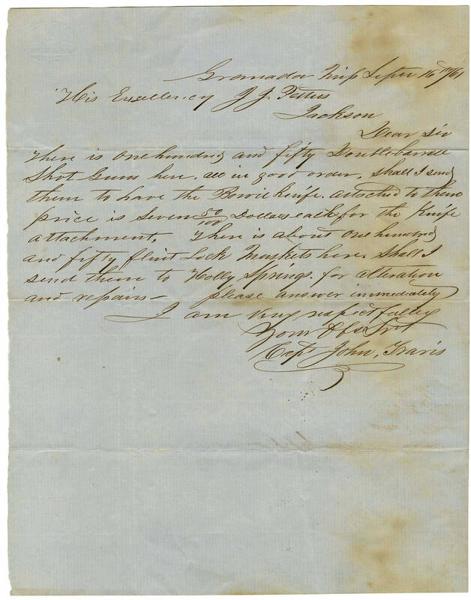 Grenada Miss Septr 16 1861
His Excellency J. J. Pettus
Jackson
Dear Sir
There is one hundred and fifty Double barrel
Shot Guns here, all in good order, Shall I send
them to have the Bowie Knife attached to them
price is Seven 50/100 Dollars each for the Knife
attachment, There is about one hundred
and fifty flint Lock Muskets here, Shall I
send them to Holly Springs for alteration
and repairs — please answer immediately
I am Very respectfully
Your Obt Svt
Capt John, Travis